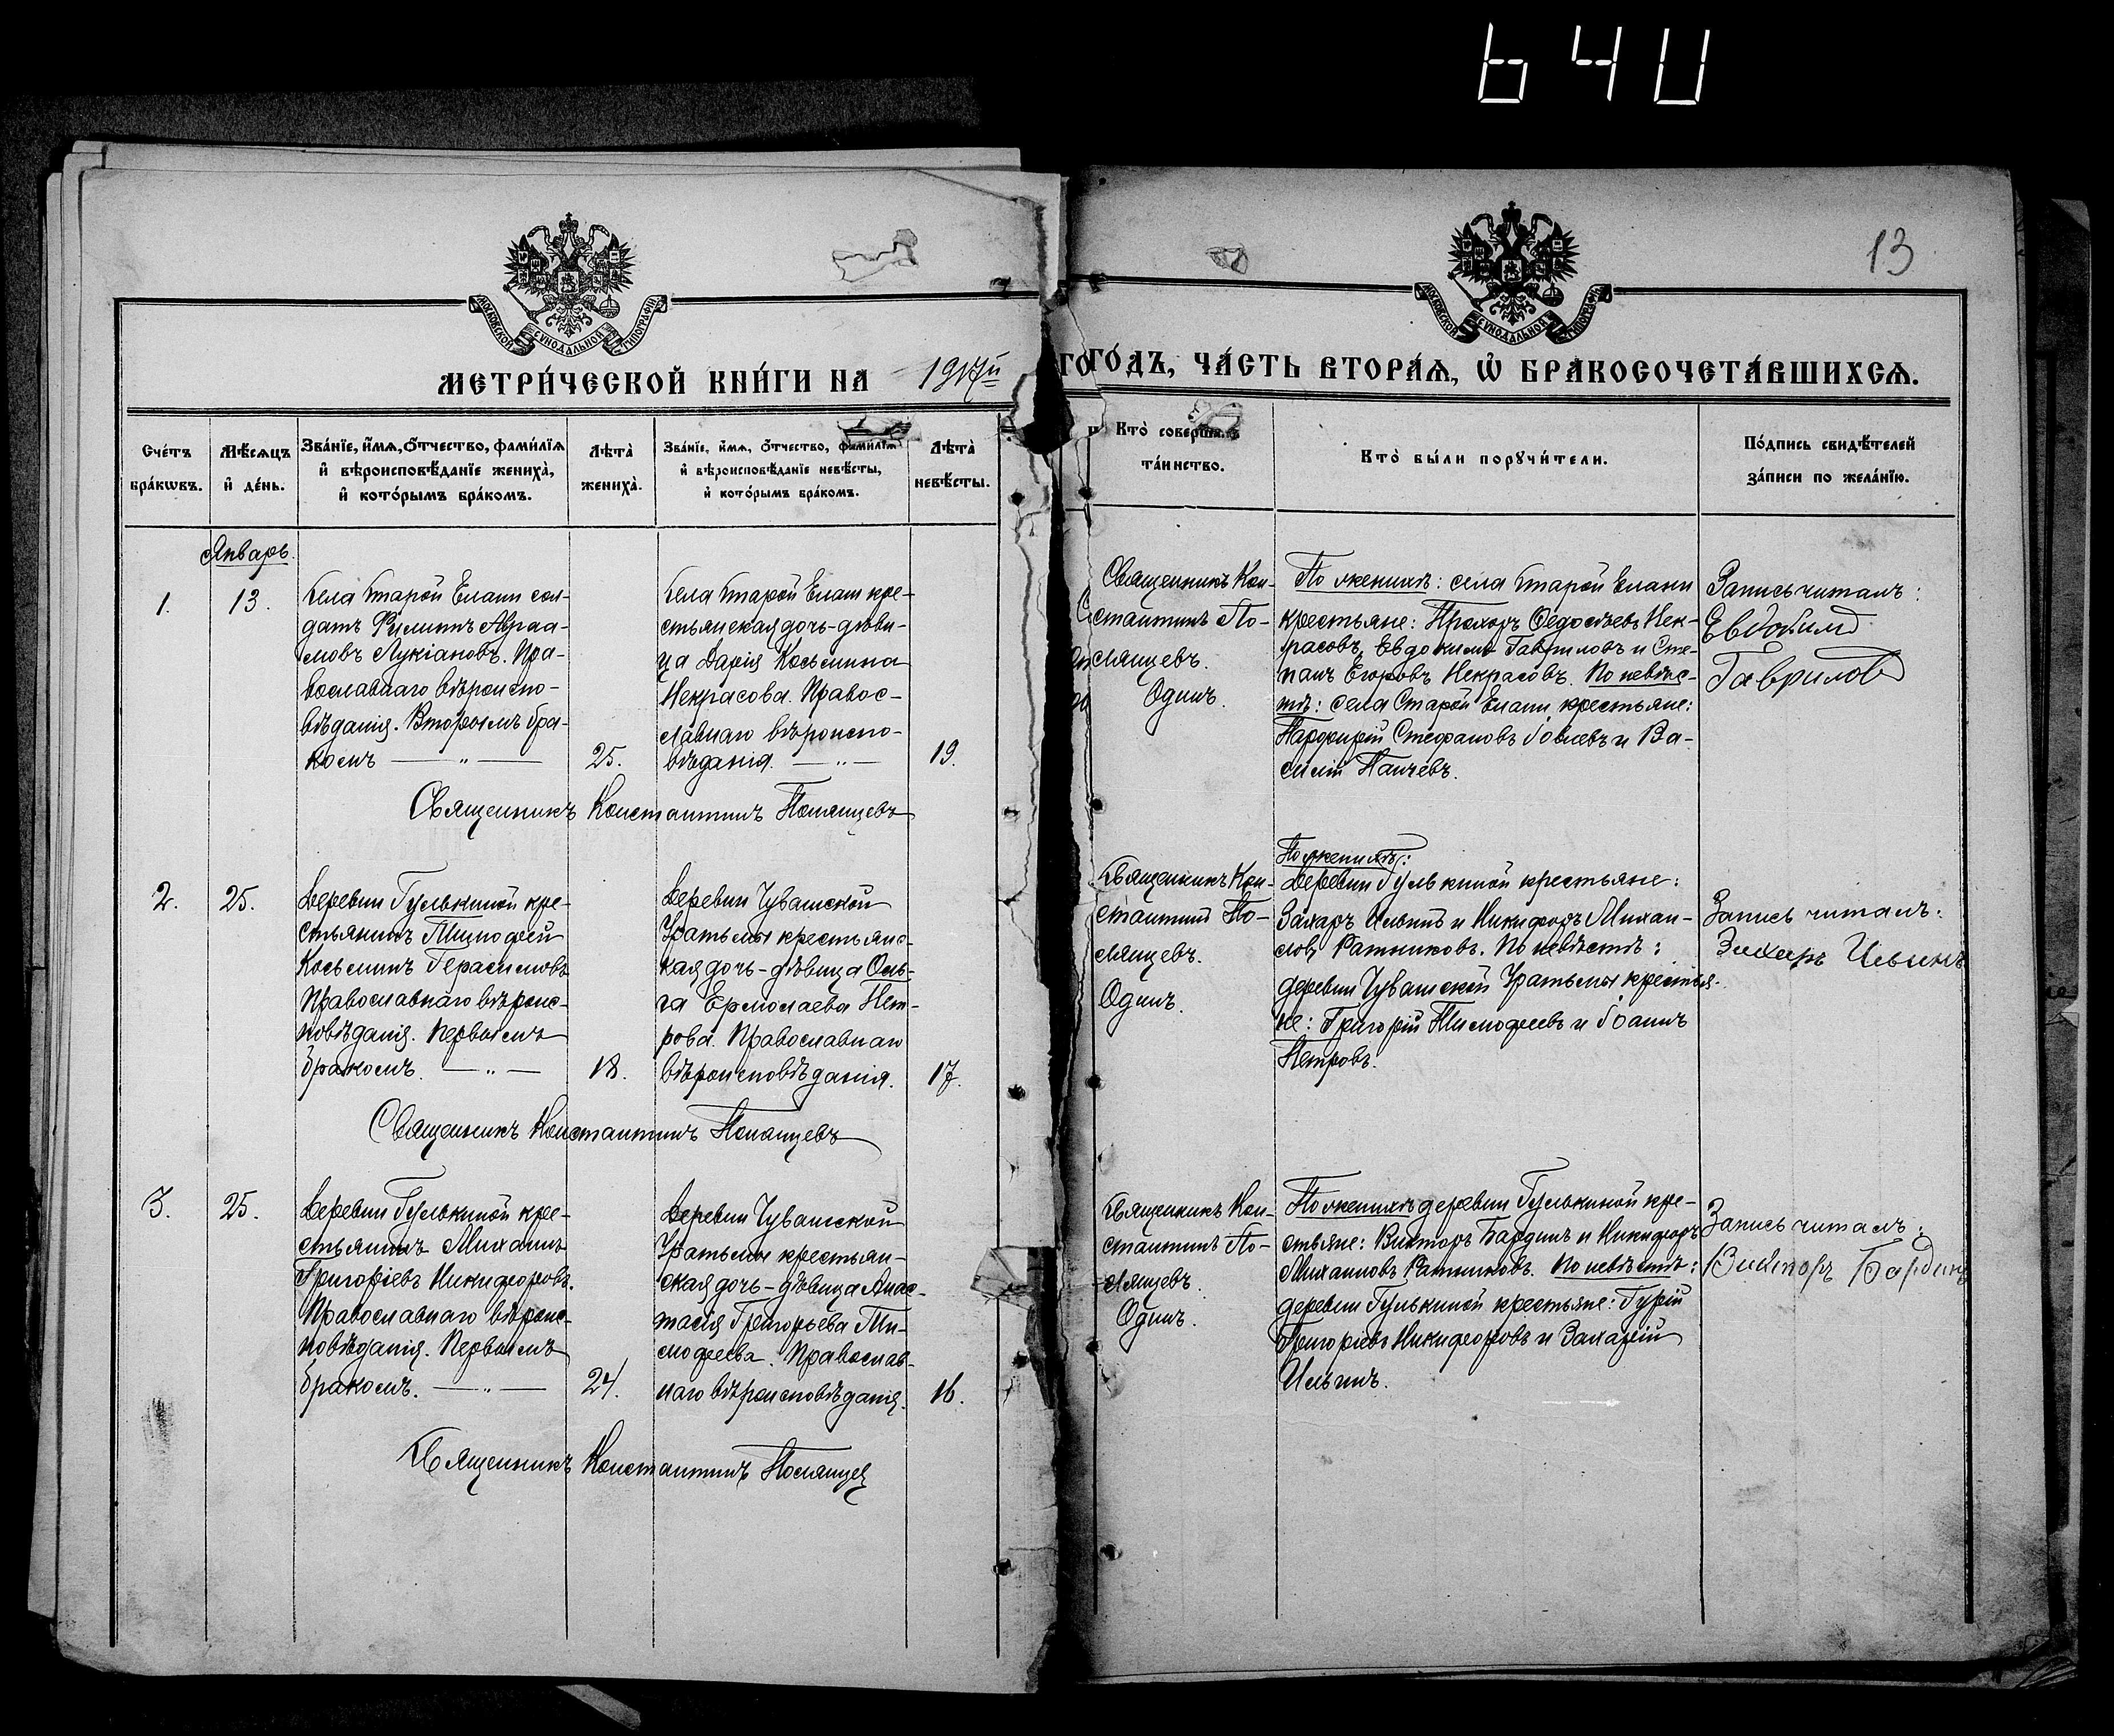 640
13
МОСКОВСКОЙ СѴНОДАЛЬНОЙ ТИПОГРАФІИ
МОСКОВСКОЙ СѴНОДАЛЬНОЙ ТИПОГРАФІИ
МЕТРИ́ЧЕСКОЙ КНИ́ГИ НА 1917й
ГО ГО́ДЪ, ЧА́СТЬ ВТОРА́Ѧ, Ѽ БРАКОСОЧЕТА́ВШИХСѦ.
Сче́тъ
бра́кѡвъ.
Мѣ́сѧцъ
и҆ де́нь.
Зва́нїе, и҆́мѧ, ѻ҆́тчество, фами́лїѧ
и҆ вѣроисповѣ́данїе жениха̀,
и҆ кото́рымъ бра́комъ.
Лѣта̀
жениха̀.
Зва́нїе, и҆́мѧ, ѻ҆́тчество, фами́лїѧ
и҆ вѣроисповѣ́данїе невѣ́сты,
и҆ кото́рымъ бра́комъ.
Лѣта̀
невѣ́сты.
Кто̀ соверша́лъ
та́инство.
Кто̀ бы́ли порꙋчи́тели.
По́дпись свидѣ́телей
за́писи по жела́нїю.
Январь.
1.
13.
Села Старой Елани сол-
датъ Филиппъ Авраа-
мовъ Лукіановъ. Пра-
вославнаго вѣроиспо-
вѣданія. Вторымъ бра-
комъ — " —
25.
Села Старой Елани кре-
стьянская дочь-дѣви-
ца Дарія Косьмина
Некрасова. Правос-
лавнаго вѣроиспо-
вѣданія. — " —
19.
Священникъ Константинъ Полянцевъ
Священникъ Кон-
стантинъ По-
лянцевъ.
Одинъ.
По женихѣ: села Старой Елани
крестьяне: Прохоръ Ѳедосѣевъ Нек-
расовъ, Евдокимъ Гавриловъ и Сте-
панъ Егоровъ Некрасовъ. По невѣс-
тѣ: села Старой Елани крестьяне:
Парфирій Стефановъ и Ва-
силій
Запись читалъ:
Евдокимъ
Гавриловъ
2.
25.
Деревни Гулькиной кре-
стьянинъ Тимоѳей
Косьминъ Герасимовъ
Православнаго вѣроис-
повѣданія. Первымъ
бракомъ. — " —
18.
Деревни Чувашской
Уратьмы крестьянс-
кая дочь-дѣвица Оль-
га Ермолаева Пет-
рова. Православнаго
вѣроисповѣданія.
17.
Священникъ Константинъ Полянцевъ
Священникъ Кон-
стантинъ По-
лянцевъ.
Одинъ.
По женихѣ:
Деревни Гулькиной крестьяне:
Захаръ Ильинъ и Никифоръ Михаи-
ловъ Ратниковъ. По невѣстѣ:
деревни Чувашской Уратьмы крестья-
не: Григорій Тимоѳеевъ и Іоаннъ
Петровъ.
Запись читалъ:
Захаръ Ильинъ
3.
25.
Деревни Гулькиной кре-
стьянинъ Михаилъ
Григоріевъ Никифоровъ.
Православнаго вѣроис-
повѣданія. Первымъ
бракомъ. — " —
24.
Деревни Чувашской
Уратьмы крестьян-
ская дочь-дѣвица Анас-
тасія Григорьева Ти-
моѳеева. Православ-
наго вѣроисповѣданія.
16.
Священникъ Константинъ Полянцевъ
Священникъ Кон-
стантинъ По-
лянцевъ.
Одинъ.
По женихѣ деревни Гулькиной кре-
стьяне: Викторъ Бардинъ и Никифоръ
Михаиловъ Ратниковъ. По невѣстѣ:
деревни Гулькиной крестьяне: Гурій
Григоріевъ Никифоровъ и Захарій
Ильинъ.
Запись читалъ:
Викторъ Бардинъ